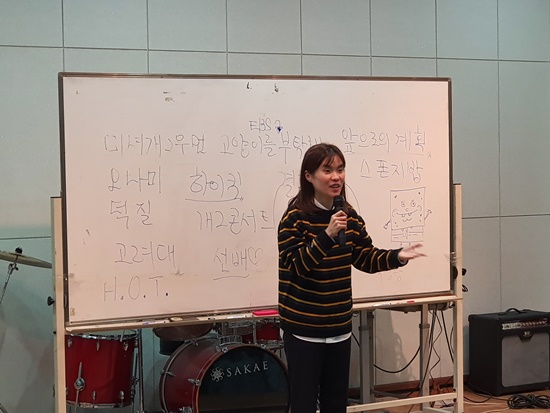 미녀개그우먼 고양이를 부탁해 앞으로의 계획
EBS
오나미 하이킥 스폰지밥
덕질 개그콘서트
고려대 선배
H.O.T.
SAKAE